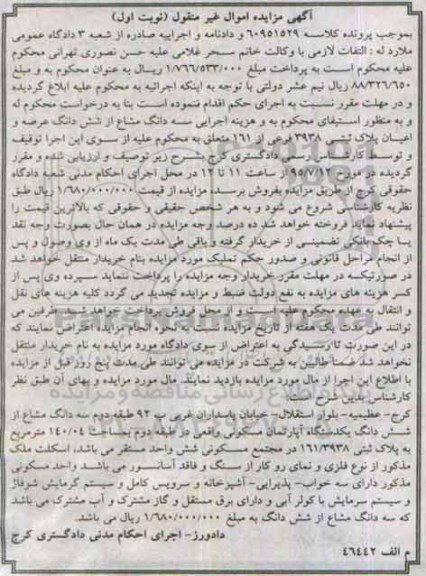 آگهی مزایده اموال غیر منقول (نوبت اول)
بموجب پرونده کلاسه ۶۰۹۵۱۵۲۹ و دادنامه و اجراییه صادره از شعبه ۳ دادگاه عمومی
ملارد له : التفات لازمی با وکالت خانم سحر غلامی علیه حسن نصوری تهرانی محکوم
علیه محکوم است به پرداخت مبلغ ۱/۷۶۶/۵۳۳/۰۰۰ ریال به عنوان محکوم به و مبلغ
۸۸/۳۲۶/۶۵۰ ریال نیم عشر دولتی با توجه به اینکه اجرائیه به محکوم علیه ابلاغ گردیده
و در مهلت مقرر نسبت به اجرای حکم اقدام ننموده است بنا به درخواست محکوم له
و به منظور استیفای محکوم به و هزینه اجرایی سه دانگ مشاع از شش دانگ عرصه و
اعیان پلاک ثبتی ۳۹۳۸ فرعی از ۱۶۱ متعلق به محکوم علیه از سوی این اجرا توقیف
و توسط کارشناس رسمی دادگستری کرج بشرح زیر توصیف و ارزیابی شده و مقرر
گردیده در مورخ ۹۵/۷/۱۲ از ساعت ۱۱ تا ۱۲ در محل اجرای احکام مدنی شعبه دادگاه
حقوقی کرج از طریق مزایده بفروش برسد. مزایده از قیمت ۱/۶۸۰/۰۰۰/۰۰۰ ریال طبق
نظریه کارشناسی شروع می شود و به هر شخص حقیقی و حقوقی که بالاترین قیمت را
پیشنهاد نماید فروخته خواهد شد ده درصد وجه مزایده در همان حال بصورت وجه نقد
یا چک بانکی تضمینی از خریدار گرفته و باقی طی مدت یک ماه از وی وصول و پس
از انجام مراحل قانونی و صدور حکم تملیک مورد مزایده بنام خریدار منتقل خواهد شد
در صورتیکه در مهلت مقرر خریدار وجه مزایده را پرداخت ننماید سپرده وی پس از
کسر هزینه های مزایده به نفع دولت ضبط و مزایده تجدید می گردد کلیه هزینه های نقل
و انتقال به عهده محکوم علیه است و از محل فروش پرداخت خواهد شد. طرفین می
توانند طی مدت یک هفته از تاریخ مزایده نسبت به نحوه انجام مزایده اعتراض نمایند که
در این صورت تا رسیدگی به اعتراض از سوی دادگاه مورد مزایده به نام خریدار منتقل
نخواهد شد ضمنا طالبین به شرکت در مزایده می توانند طی مدت پنج روز قبل از مزایده
با اطلاع این اجرا از مال مورد مزایده بازدید نمایند. مال مورد مزایده و بهای آن طبق نظر
کارشناس بدین شرح است
کرج- عظیمیه- بلوار استقلال- خیابان پاسداران غربی پ ۹۲ طبقه دوم سه دانگ مشاع از
شش دانگ یکدستگاه آپارتمان مسکونی واقعی در طبقه دوم به مساحت ۱۴۰/۰۴ مترمربع
به پلاک ثبتی ۱۶۱/۳۹۳۸ در مجتمع مسکونی شش واحد مستقر می باشد، اسکلت ملک
مذکور از نوع فلزی و نمای رو کار از سنگ و فاقد آسانسور می باشد. واحد مسکونی
مذکور دارای سه خواب- پذیرایی- آشپزخانه و سرویس کامل و سیستم گرمایش شوفاژ
و سیستم سرمایش با کولر آبی و دارای برق مستقل و گاز مشترک و آب مشترک می باشد
که سه دانگ مشاع از شش دانگ به مبلغ ۱/۶۸۰/۰۰۰/۰۰۰ ریال می باشد.
دادورز- اجرای احکام مدنی دادگستری کرج
م الف ۴۶۴۴۲